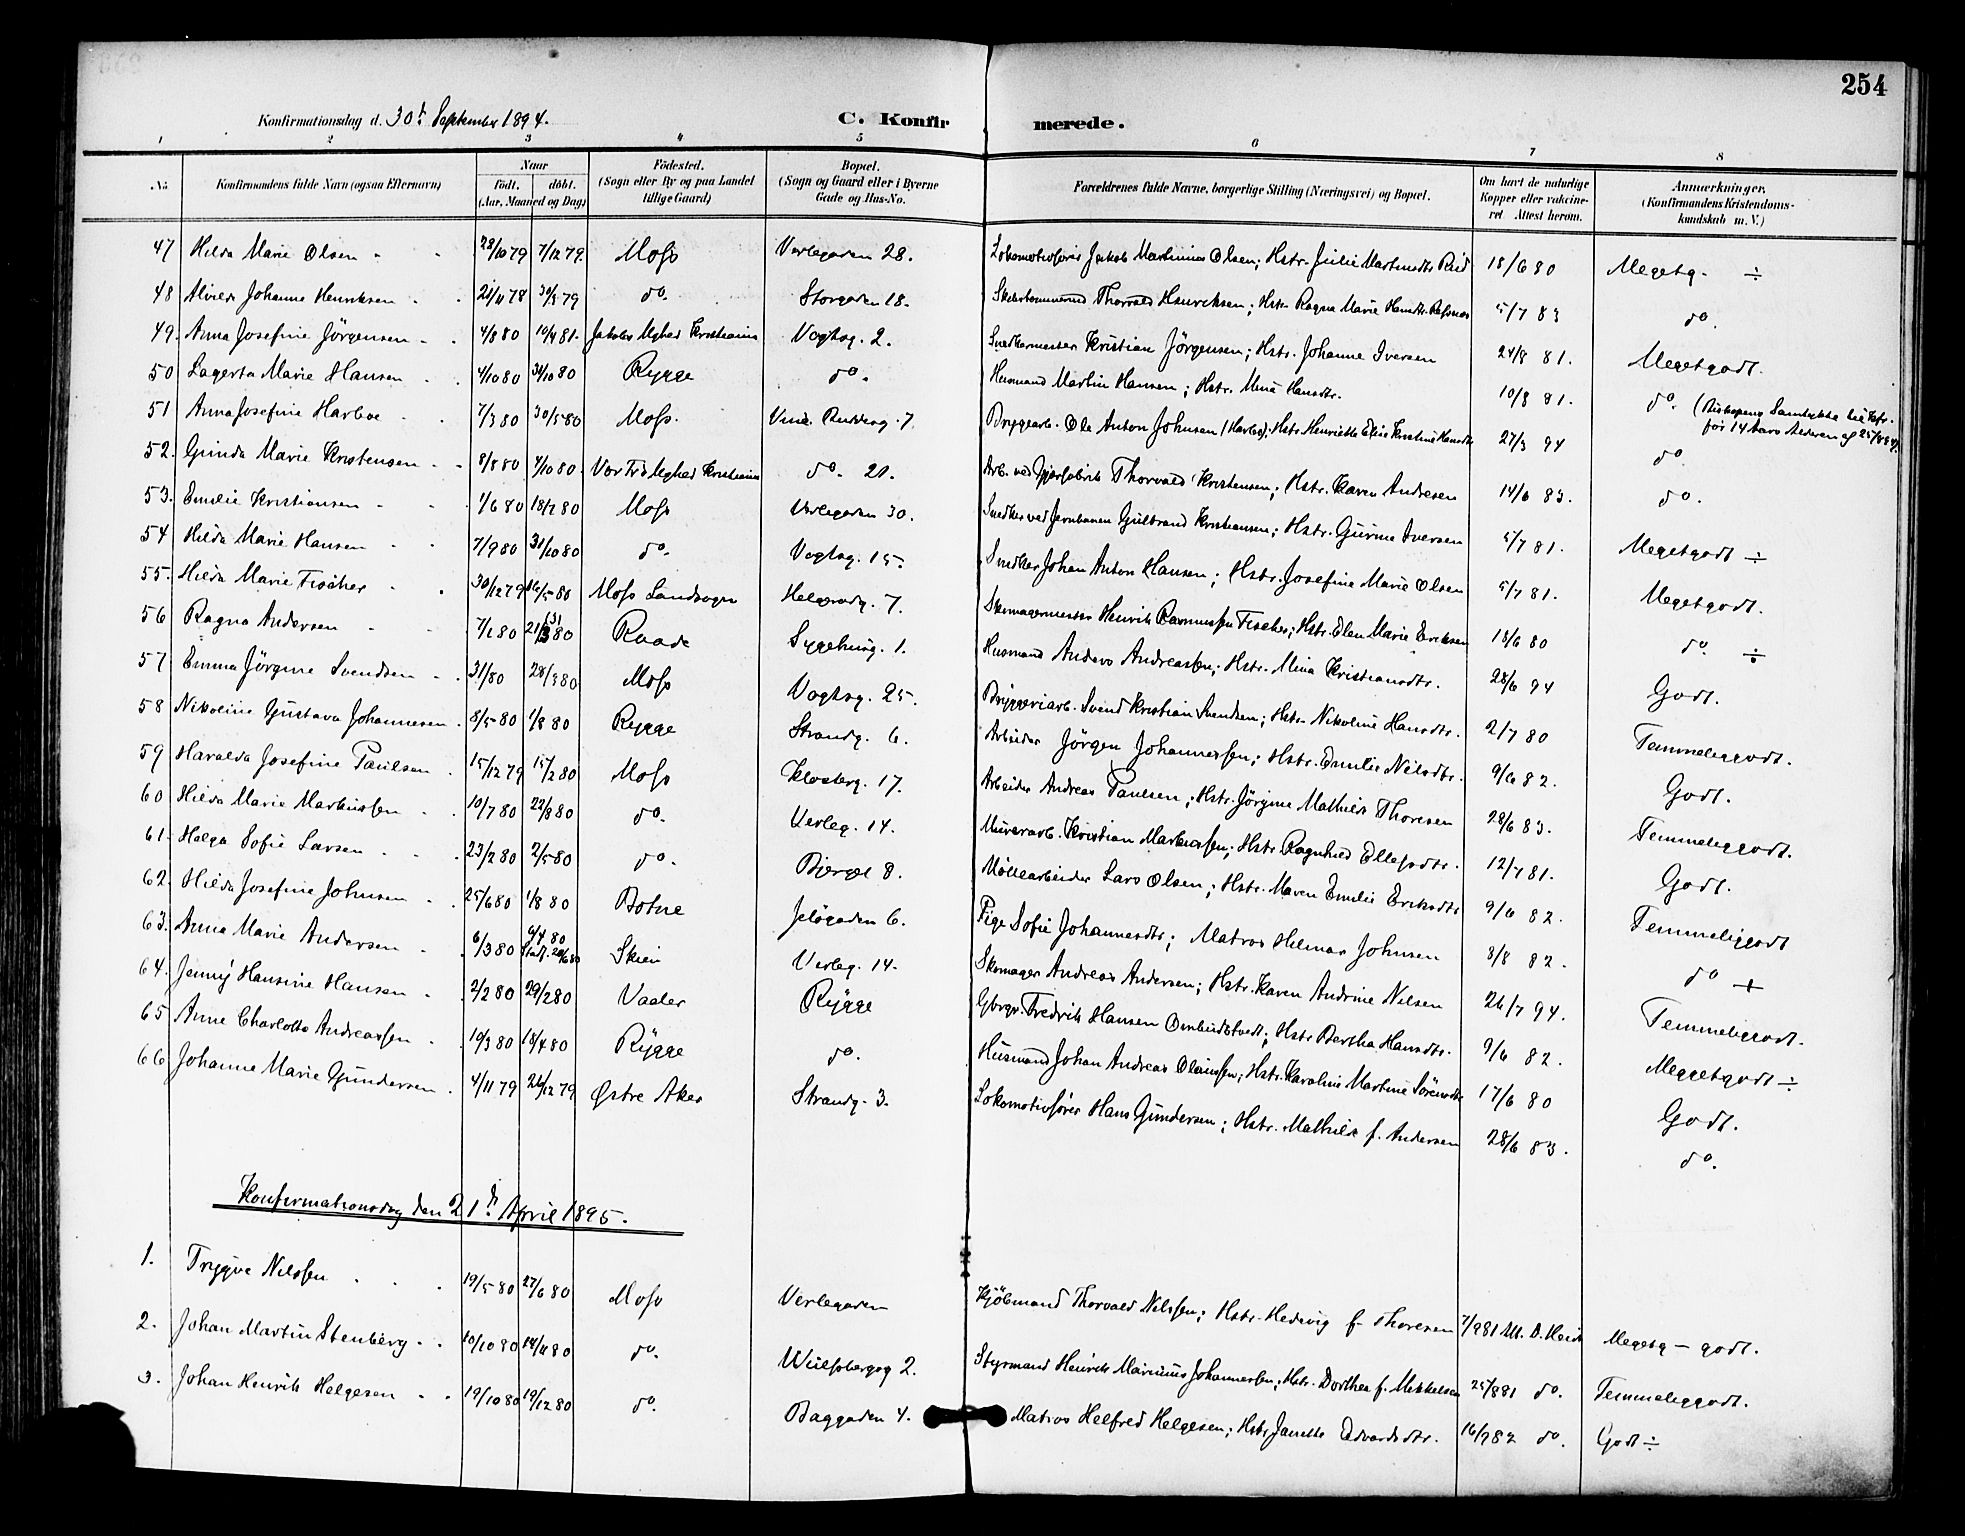 254
Konfirmationsdag d. 30t September 1894.
C. Konfir merede.
1 2 3 4 5 6 7 8
No. Konfirmandens fulde Navn (ogsaa Efternavn) Naar født. døbt. (Aar, Maaned og Dag) Födested. (Sogn eller By og paa Landet tillige Gaard) Bopæl. (Sogn og Gaard eller i Byerne Gade og Hus-No. Forældrenes fulde Navne, borgerlige Stilling (Næringsvei) og Bopæl. Om havt de naturlige Kopper eller vakcineret. Attest herom. Anmærkninger. (Konfirmandens Kristendomskundskab m. V.)
47 Hilda Marie Olsen 28/10 79 7/12 79. Moss Verlegaden 28. Lokomotivfører Jakob Martinius Olsen; Hstr. Julie Martinsdtr Rud 18/6 80 Megetg. ÷
48 Johanne Henriksen 21/11 78 30/3 79 do. Storgaden 18. Thorvald Henriksen; Hstr. Ragna Marie Hansdtr. 5/7 83 do.
49. Anna Josefine Jörgensen 4/8 80 10/4 81. Jakobs Mghed Kristiania Vogtsg. 2. Snedkermester Kristian Jörgensen; Hstr. Johanne Iversen 24/8 81. Megetgodt.
50 Lagerta Marie Hansen 4/10 80 31/10 80 Rygge do. Husmand Martin Hansen; Hstr. Mina Hansdtr. 10/8 81. do. (Biskopens Samtykke til Kfr. før 14 Aars Alderen af 25/8 94).
51 Anna Josefine Harboe 7/3 80 30/5 80 Moss. 7. Bryggearb. Ole Anton Johnsen (Harbo); Hstr. Henriette Elise Kristine Hansdtr 27/3 94 do.
52. Gunda Marie Kristensen 8/8 80 7/10 80. Vor Frls Mghed Kristiania do. 20. Arb. ved Thorvald Kristensen; Hstr. Karen Andresen 14/6 83. do.
53. Emilie Kristiansen 1/6 80 18/7 80 Moss Verlegaden 30. Snedker ved Jernbanen Gulbrand Kristiansen; Hstr. Gurine Iversen 5/7 81. Megetgodt ÷
54 Hilda Marie Hansen 7/9 80 31/10 80 do. Vogtsg. 15. Snedker Johan Anton Hansen; Hstr. Josefine Marie Olsen 5/7 81. Megetgodt.
55. Hilda Marie Fischer 30/12 79 16/5 80 Moss Landsogn Helgerødg. 7. Skomagermester Henrik Rasmussen Fischer; Hstr. Elen Marie Eriksen 18/6 80 do. ÷
56 Ragna Andersen 7/1 80 21/3 80 (3) Raade Sygehusg. 1. Husmand Anders Andreassen; Hstr. Mina Kristiansdtr. 28/6 94 Godt.
57 Emma Jörgine Svendsen 31/1 80 28/3 80 Moss Vogtsg. 25. Bryggeriarb. Svend Kristian Svendsen; Hstr. Nikoline Hansdtr. 2/7 80 Temmeliggodt.
58 Nikoline Gustava Johannesen. 8/5 80 1/8 80 Rygge Strandg. 6. Arbeider Jörgen Johannessen; Hstr. Emilie Nilsdtr. 9/6 82. Godt.
59 Haralda Josefine Paulsen 15/12 79 15/2 80 Moss Klosterg. 17. Arbeider Andreas Paulsen; Hstr. Jörgine Mathilde Thoresen 28/6 83. Temmeliggodt.
60 Hilda Marie Markussen 10/7 80 22/8 80 do. Verleg. 14. Murerarb. Kristian Markussen; Hstr. Ragnhild Ellefsdtr. 12/7 81. Godt.
61. Helga Sofie Larsen 23/2 80 2/5 80 do. Bjerget 8. Møllearbeider Lars Olsen; Hstr. Maren Emilie Eriksdtr 9/6 82. Temmeliggodt
62. Hilda Josefine Johnsen 25/6 80 1/8 80 Botne Jeløgaden 6. Pige Sofie Johannesdtr; Matros Helmar Johnsen 8/8 82. do +
63. Anna Marie Andersen 6/3 80 4/4 80 Stadf. 20/6 80 Skien Verleg. 14. Skomager Andreas Andersen; Hstr. Karen Andrine Nilsen 26/7 94. Temmeliggodt.
64. Jenny Hansine Hansen 2/2 80 29/2 80 Vaaler Rygge Gbrgr. Fredrik Hansen; Hstr Bertha Hansdtr. 9/6 82. Meggetgodt ÷
65 Anne Charlotte Andreassen 10/3 80 18/4 80 Rygge do. Husmand Johan Andreas Olaussen; Hstr. Karoline Martine Sörensdtr 17/6 80 Godt.
66. Johanne Marie Gundersen 4/11 79 26/12 79 Østre Aker Strandg. 3. Lokomotivfører Hans Gundersen; Hstr. Mathilde f. Andersen 28/6 83. do.
Konfirmationsdag den 21de April 1895.
1. Trygve Nilssen 19/5 80 27/6 80 Moss Verlegaden Kjöbmand Thorvald Nilssen; Hstr. Hedevig f. Thoresen 7/9 81 Megetg - godt.
2. Johan Martin Stenberg 10/10 80 14/11 80 do. Wulfsbergsg 2. Styrmand Henrik Marinius Johannessen; Hstr. Dorthea f. Mikkelsen 25/8 81 do. Temmeliggodt.
3. Johan Henrik Helgesen 19/10 80 19/12 80 do. Baggaden 4. Matros Helfred Helgesen; Hstr Janette Edvardsdtr. 16/9 82 do. Godt ÷